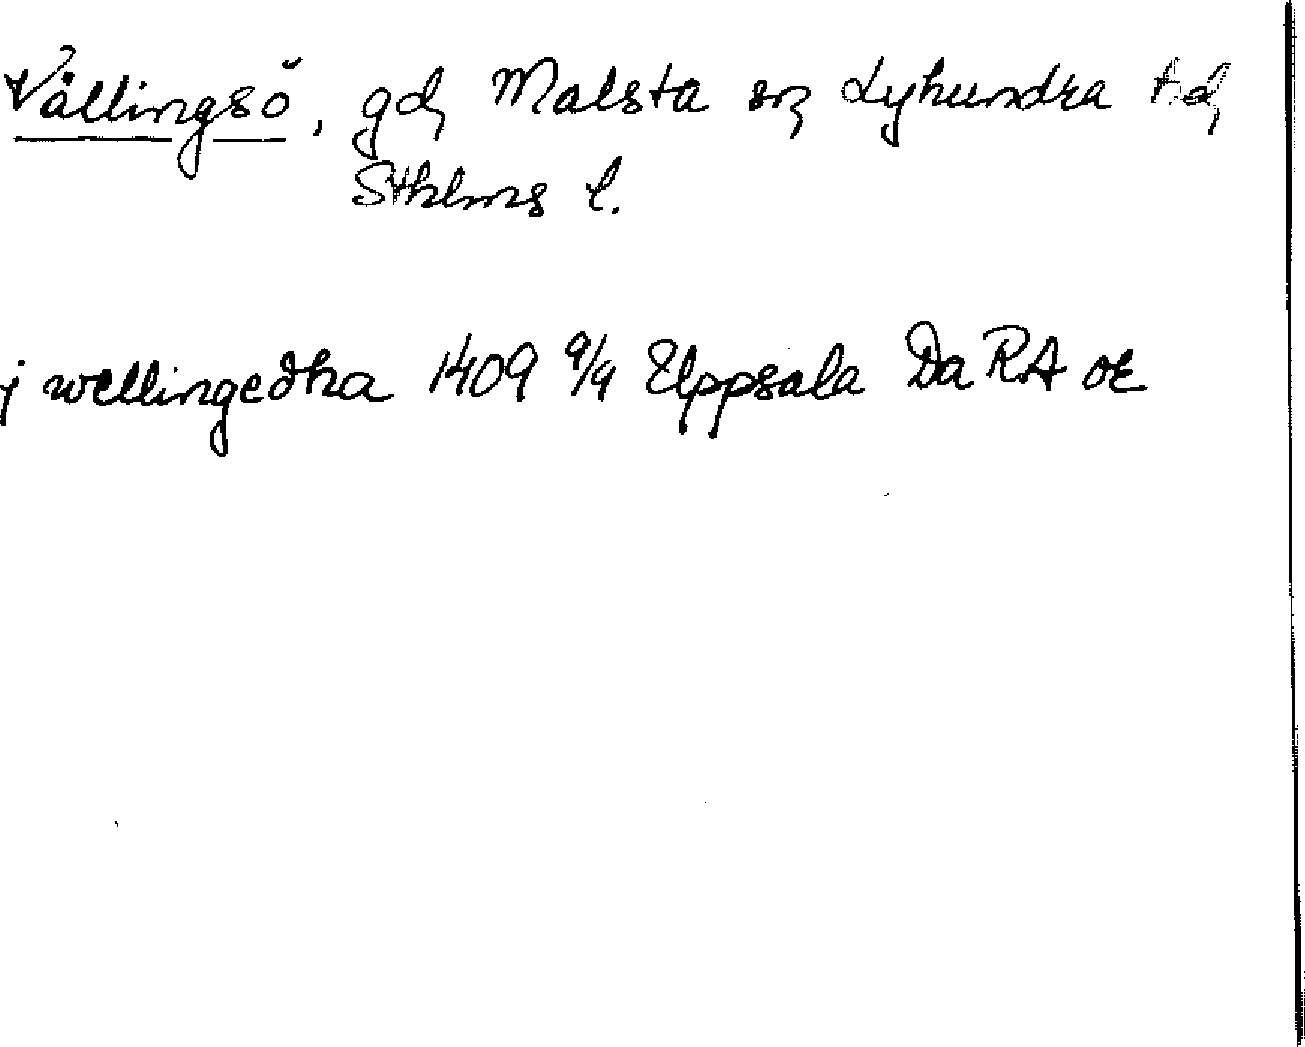 Vällingsö, gd, Malsta sn, Lyhundra hd,
Sthlms l.
j wellingeðha 1409 9/4 Uppsala Da RA or